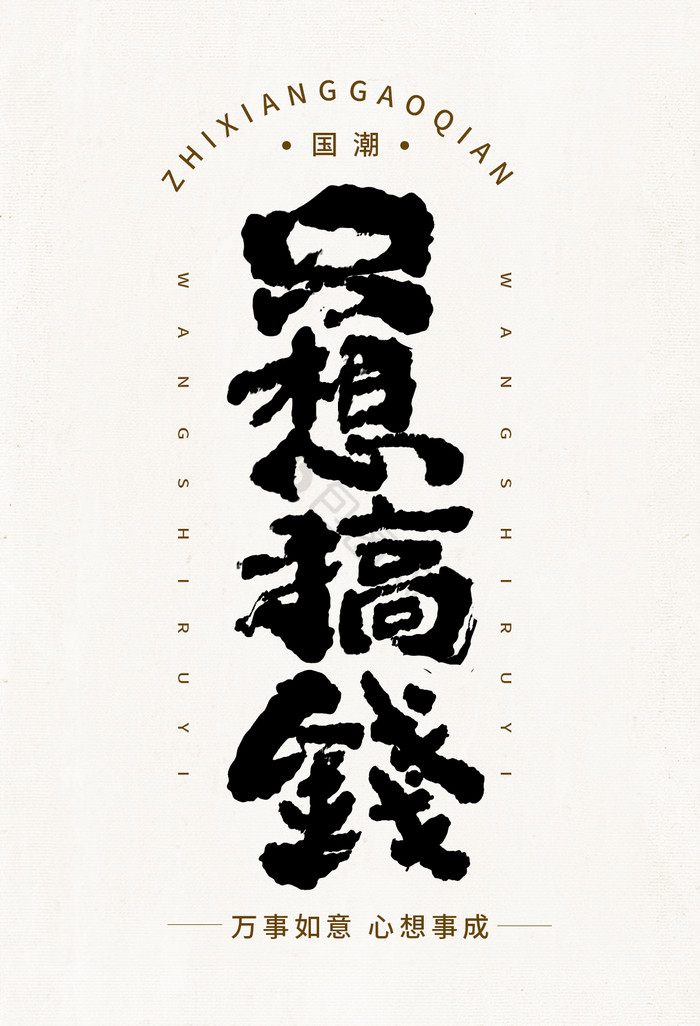 ZHIXIANGGAOQIAN
• 国潮 •
只想搞錢
WANGSHIRUYI
WANGSHIRUYI
万事如意 心想事成